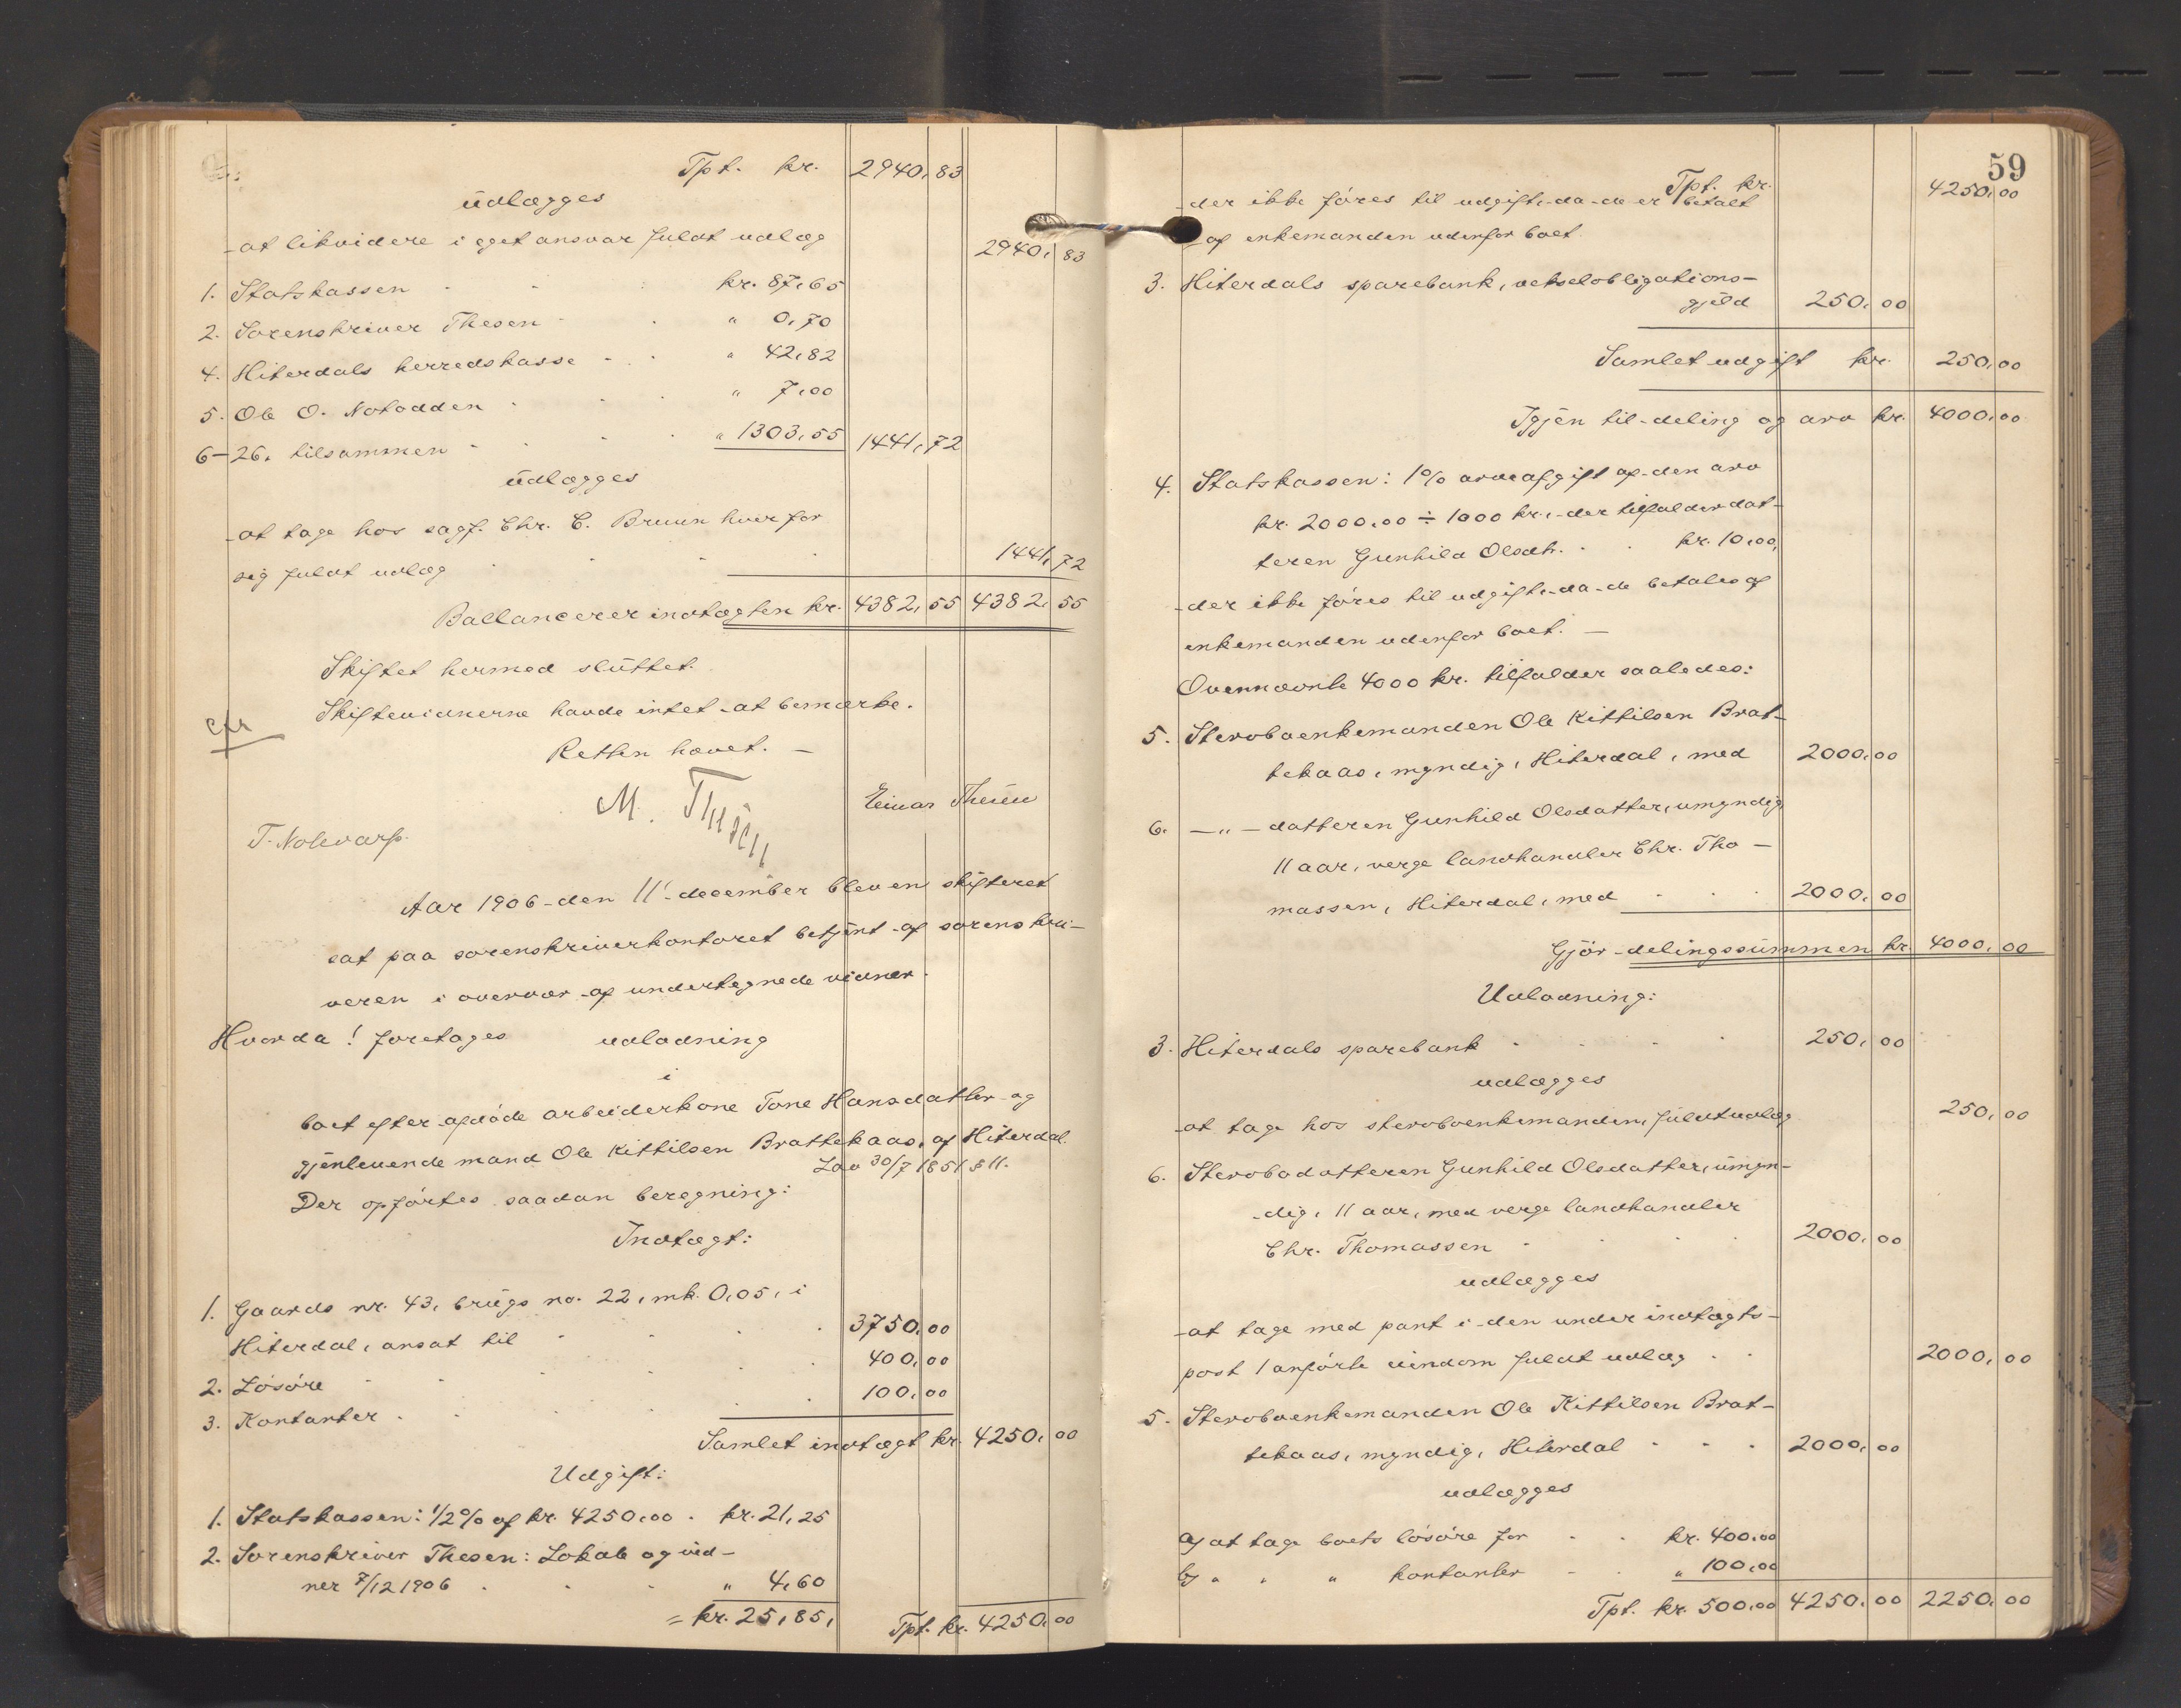 Tpt. kr. 2940,83
udlægges
at likvidere i eget ansvar fuldt udlæg 2940,83
1. Statskassen kr. 87,65
2. Sorenskriver Thesen " 0,70
4. Hiterdals herredskasse " 42,82
5. Ole O. Notodden " 7,00
6-26. tilsammen " 1303,55 1441,72
udlægges
at tage hos sagf. Chr. C. Bruun hver for
sig fuldt udlæg 1441,72
Ballancerer indtægten kr. 4382,55 4382,55
Skiftet hermed sluttet.
Skiftevidnerne havde intet at bemærke.
Retten hævet. —
M. Thesen Einar Thesen
Aar 1906 den 11' december blev en skifteret
sat paa sorenskriverkontoret betjent af sorenskri-
veren i overvær af undertegnede vidner.
Hvorda! foretages udlodning
i
boet efter afdöde arbeiderkone Tone Hansdatter og
gjenlevende mand Ole Kittilsen Brattekaas, af Hiterdal.
Lov 30/7 1851 § 11.
Der opförtes saadan beregning:
Indtægt:
1. Gaards nr. 43, brugs no. 22, mk. 0,05, i
Hiterdal, ansat til 3750,00
2. Lösöre 400,00
3. Kontanter 100,00
Samlet indtægt kr. 4250,00
Udgift:
1. Statskassen: 1/2% af kr. 4250,00 kr. 21,25
2. Sorenskriver Thesen: Lokale og vid-
ner 7/12 1906 " 4,60
= kr. 25,85, Tpt. kr. 4250,00
59
Tpt. kr. 4250,00
der ikke föres til udgift, da de er betalt
af enkemanden udenfor boet.
3. Hiterdals sparebank, vekselobligations-
gjeld 250,00
Samlet udgift kr. 250,00
Igjen til deling og arv kr. 4000,00
4. Statskassen: 1% arveafgift af den arv
kr. 2000,00 ÷ 1000 kr., der tilfalder dat-
teren Gunhild Olsdtr. kr. 10,00,
der ikke föres til udgift, da de betales af
enkemanden udenfor boet. —
Ovennævnte 4000 kr. tilfalder saaledes:
5. Stervboenkemanden Ole Kittilsen Brat-
tekaas, myndig, Hiterdal, med 2000,00
6. —"— datteren Gunhild Olsdatter, umyndig
11 aar, verge landhandler Chr. Tho-
massen, Hiterdal, med 2000,00
Gjör delingssummen kr. 4000,00
Udlodning:
3. Hiterdals sparebank 250,00
udlægges
at tage hos stervboenkemanden, fuldt udlæg 250,00
6. Stervbodatteren Gunhild Olsdatter, umyn-
dig, 11 aar, med verge landhandler
Chr. Thomassen 2000,00
udlægges
at tage med pant i den under indtægts-
post 1 anförte eiendom fuldt udlæg 2000,00
5. Stervboenkemanden Ole Kittilsen Brat-
tekaas, myndig, Hiterdal 2000,00
udlægges
a) at tage boets lösöre for kr. 400,00
b) " " " kontanter " 100,00
Tpt. kr. 500,00 4250,00 2250,00